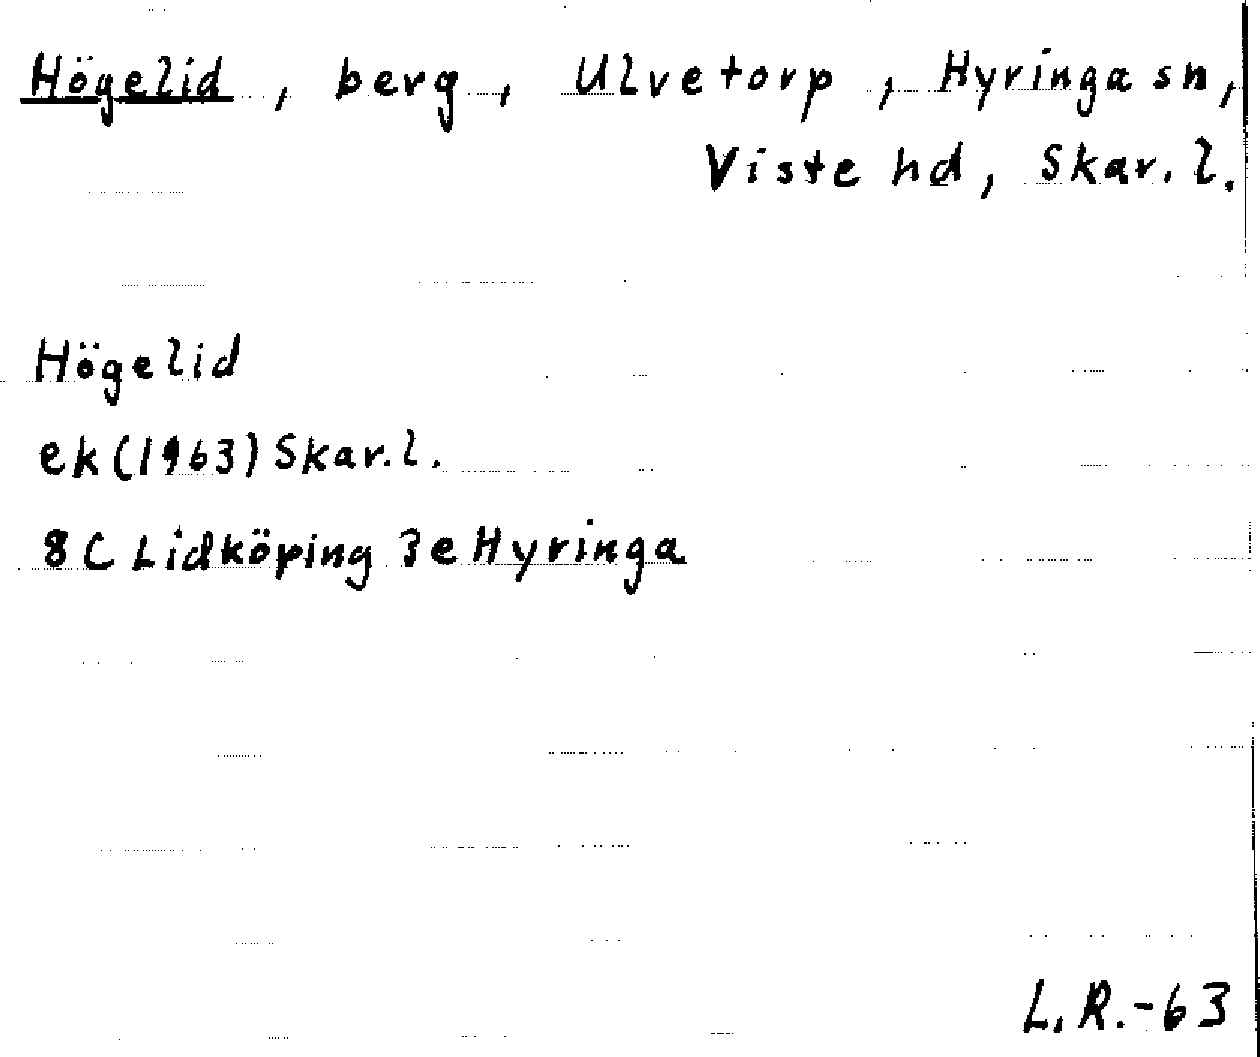 Högelid, berg, Ulvetorp, Hyringa sn,
Viste hd, Skar. l.
Högelid
ek (1963) Skar. l.
8 C Lidköping 3e Hyringa
L. R. -63